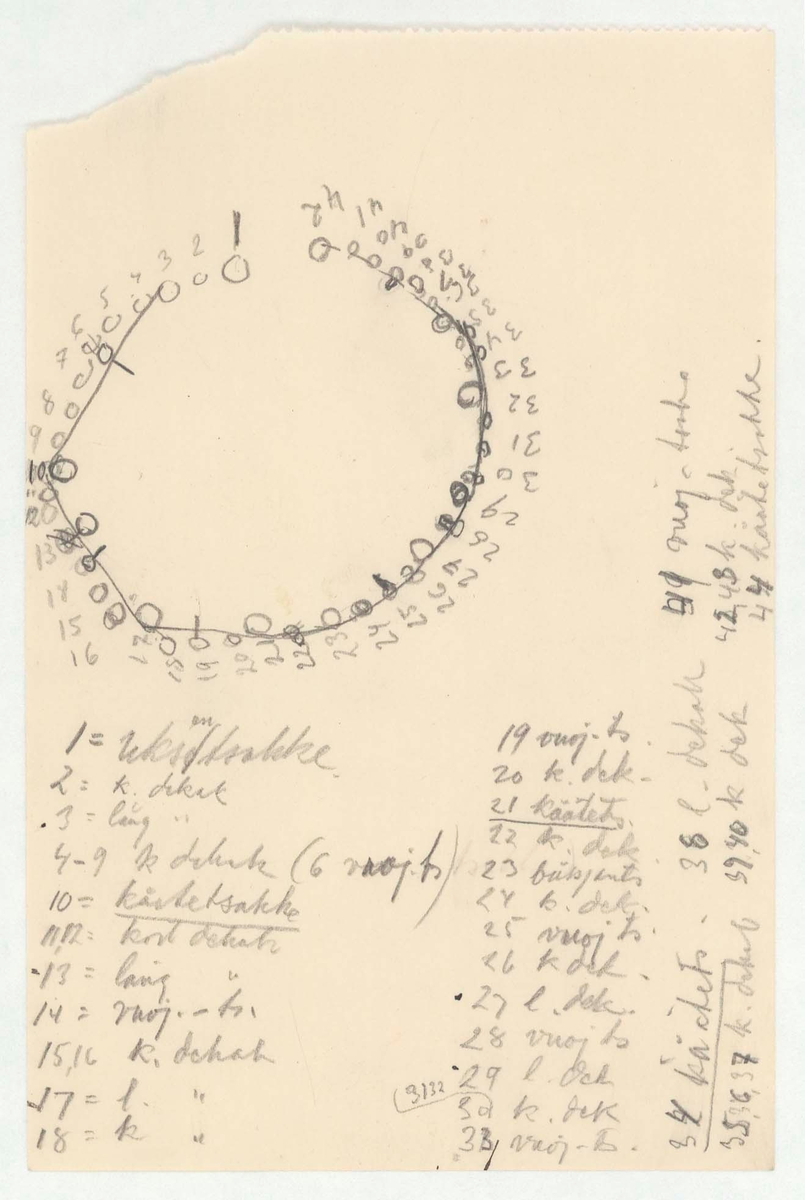 1
2
3
4
5
6
7
8
9
10
11
12
13
14
15
16
17
18
19
20
21
22
23
24
25
26
27
28
29
30
31
32
33
41
42
1 = uks/tsakke
en
2 = k. dekak
3 = lång "
4-9 k dekak (6 vuoj.ts)
10 = kåetetsakke
11,12 = kort dekak
13 = lång "
14 = vuoj.-ts.
15,16 k. dekak
17 = l. "
18 = k "
19 vuoj-ts.
20 k. dek-
21 kåätets.
22 k. dek
24 k. dek.
25 vuoj ts.
26 k dek.
27 l. dek.
28 vuoj ts
29 l. dek
3132
30 k. dek
33, vuoj-ts.
34 kåätets. 38 l-dekak
35,36,37 k. dekak 39,40 k dek
42,43 k. dek
44 kåätetsakke.